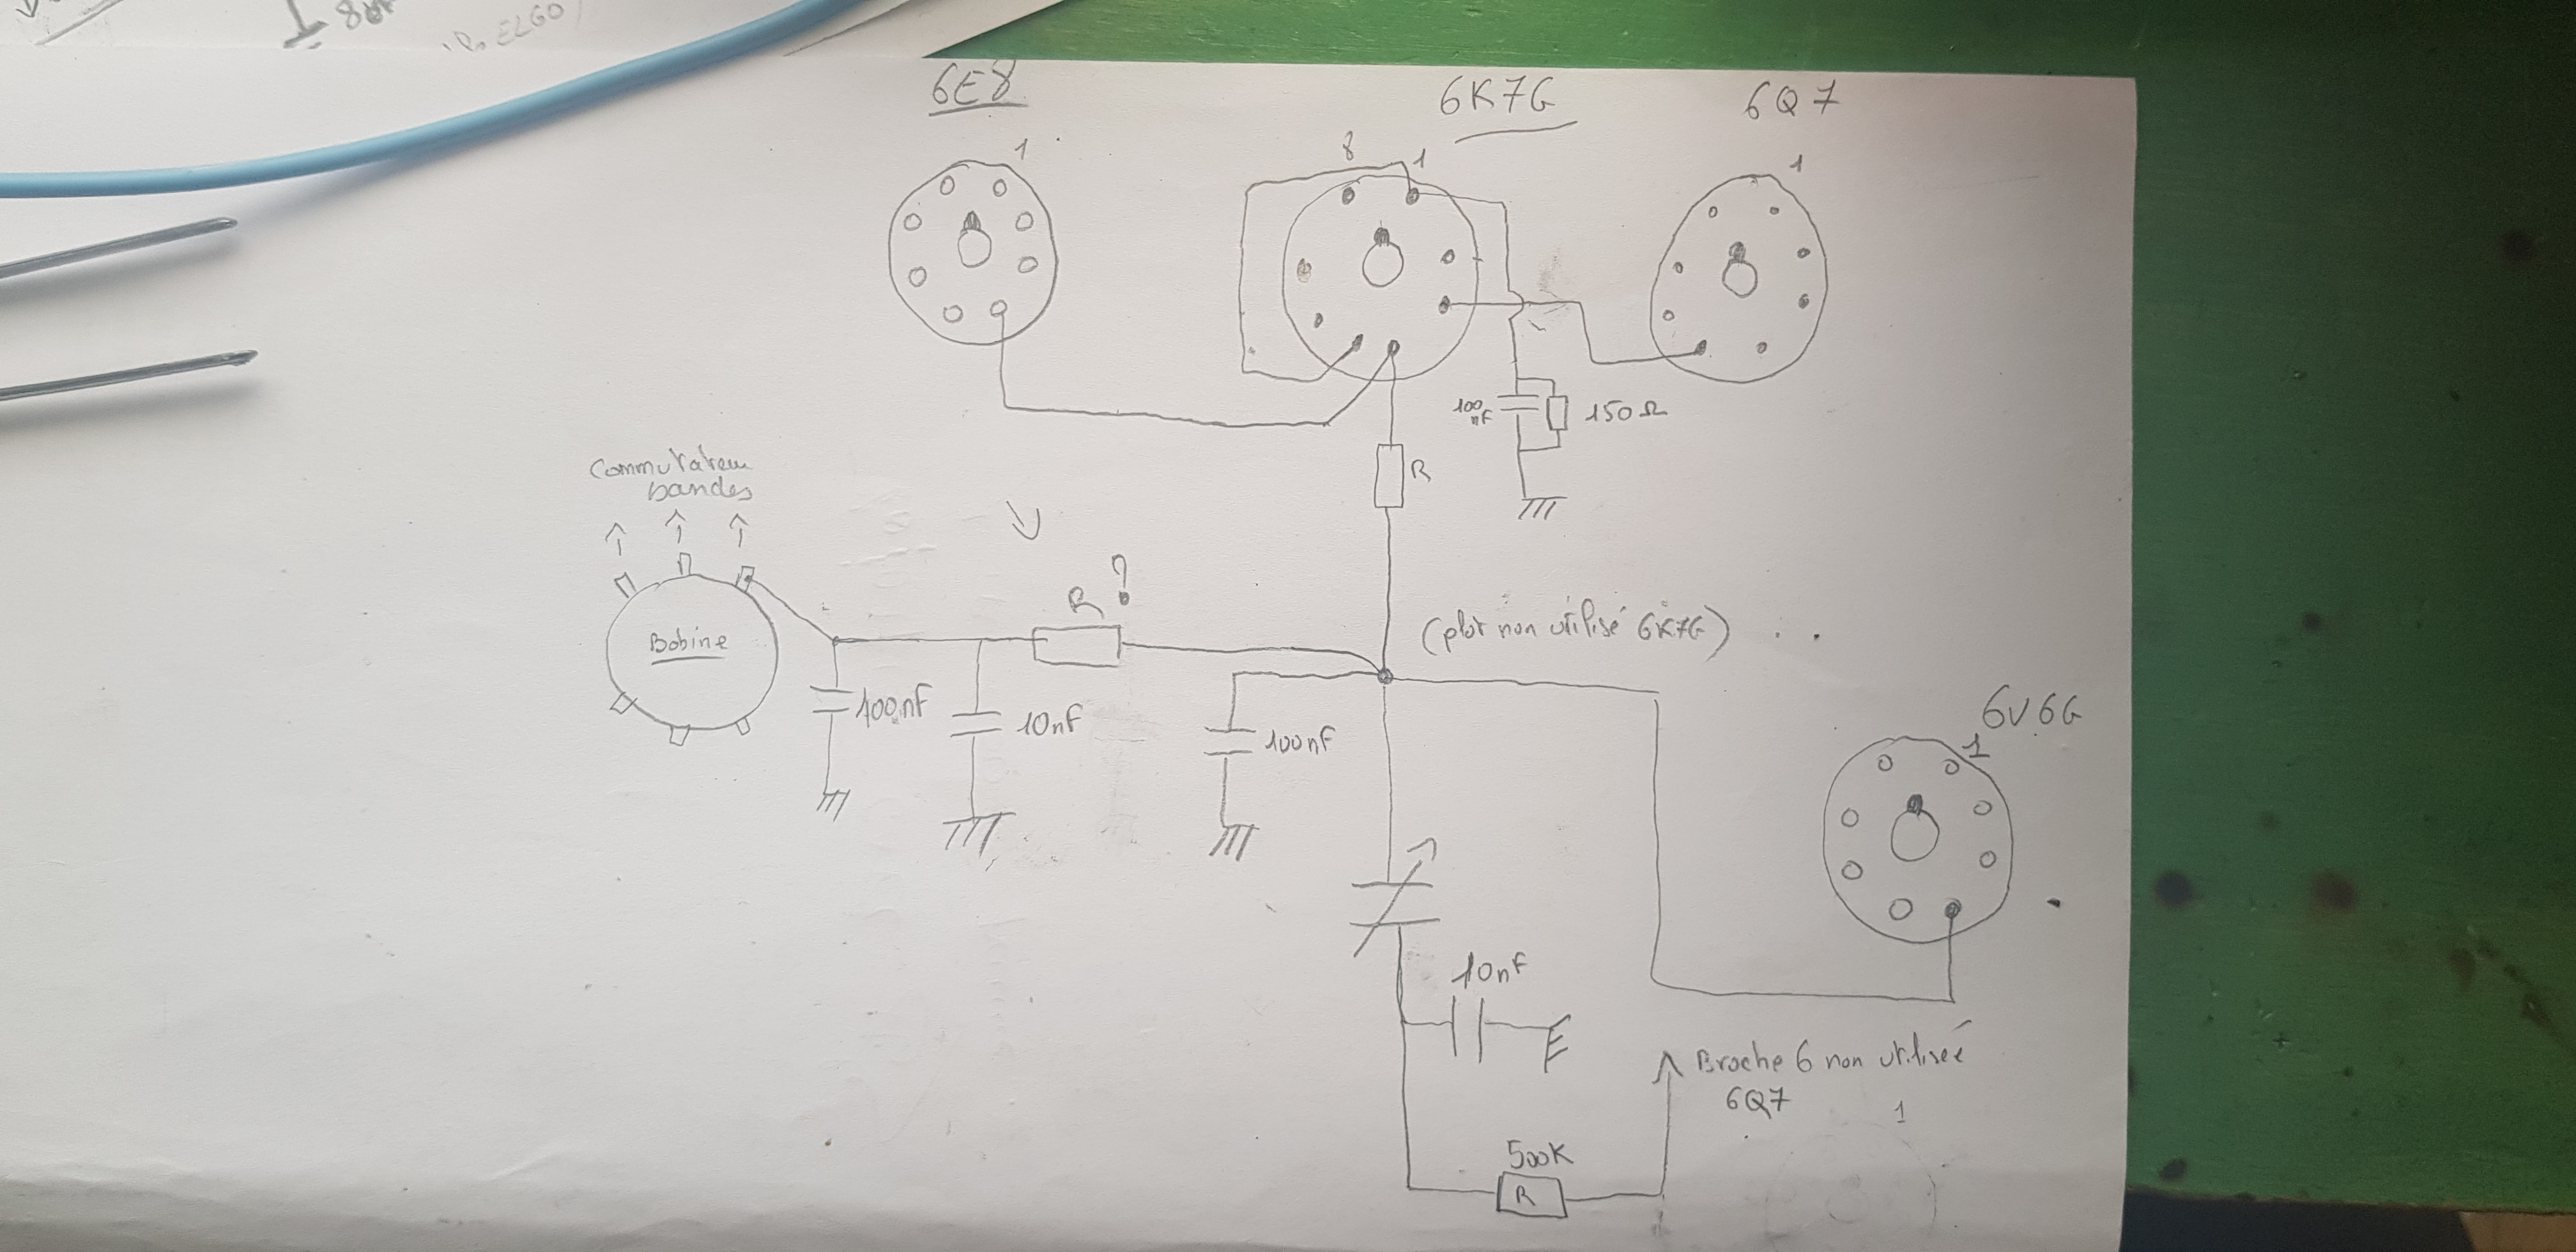 ELGO
6E8
6K7G
6Q7
1
8
1
1
100
nF
150Ω
R
Commutateur
bandes
R ?
Bobine
(plot non utilisé 6K7G)
100nF
10nF
100nF
6V6G
1
10nF
Broche 6 non utilisée
6Q7
1
500K
R